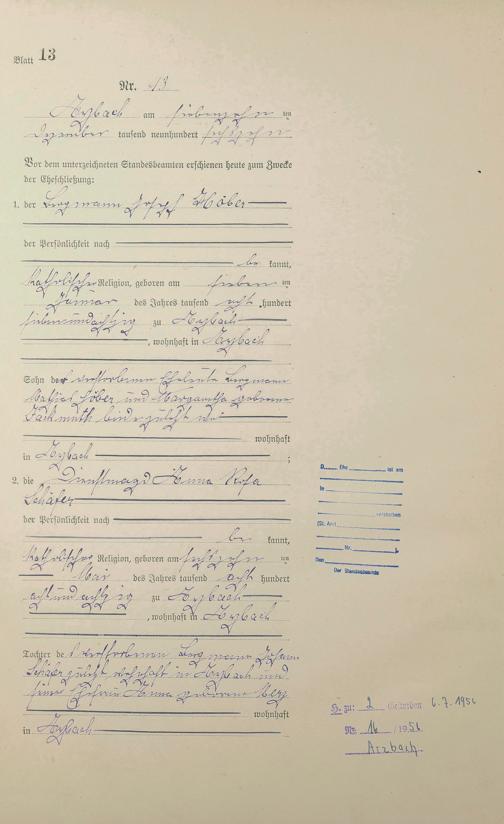 Blatt 13
Nr. 13
Arzbach am siebenzehnten
Dezember tausend neunhundert sechszehn
Vor dem unterzeichneten Standesbeamten erschienen heute zum Zwecke
der Eheschließung:
1. der Bergmann Joseph Höber
der Persönlichkeit nach
be kannt,
katholischer Religion, geboren am sieben ten
Januar des Jahres tausend acht hundert
siebenundachtzig zu Arzbach
, wohnhaft in Arzbach
Sohn der verstorbenen Eheleute Bergmann
Höber und Margaretha geborene
beide zuletzt
wohnhaft
in Arzbach ;
2. die Dienstmagd Anna Rosa
Schäfer
der Persönlichkeit nach
be kannt,
katholischer Religion, geboren am sechszehn ten
Mai des Jahres tausend acht hundert
achtundachtzig zu Arzbach
, wohnhaft in Arzbach
Tochter des verstorbenen Bergmann Johann
Schäfer zuletzt wohnhaft in Arzbach und
seiner Ehefrau Anna geborene
wohnhaft
in Arzbach
D. Ehe ist am
in
verstorben
(St. Amt
Nr. ).
Den
Der Standesbeamte
zu: 2 Gestorben 6.7.1956
Nr. 16 / 1956
Arzbach